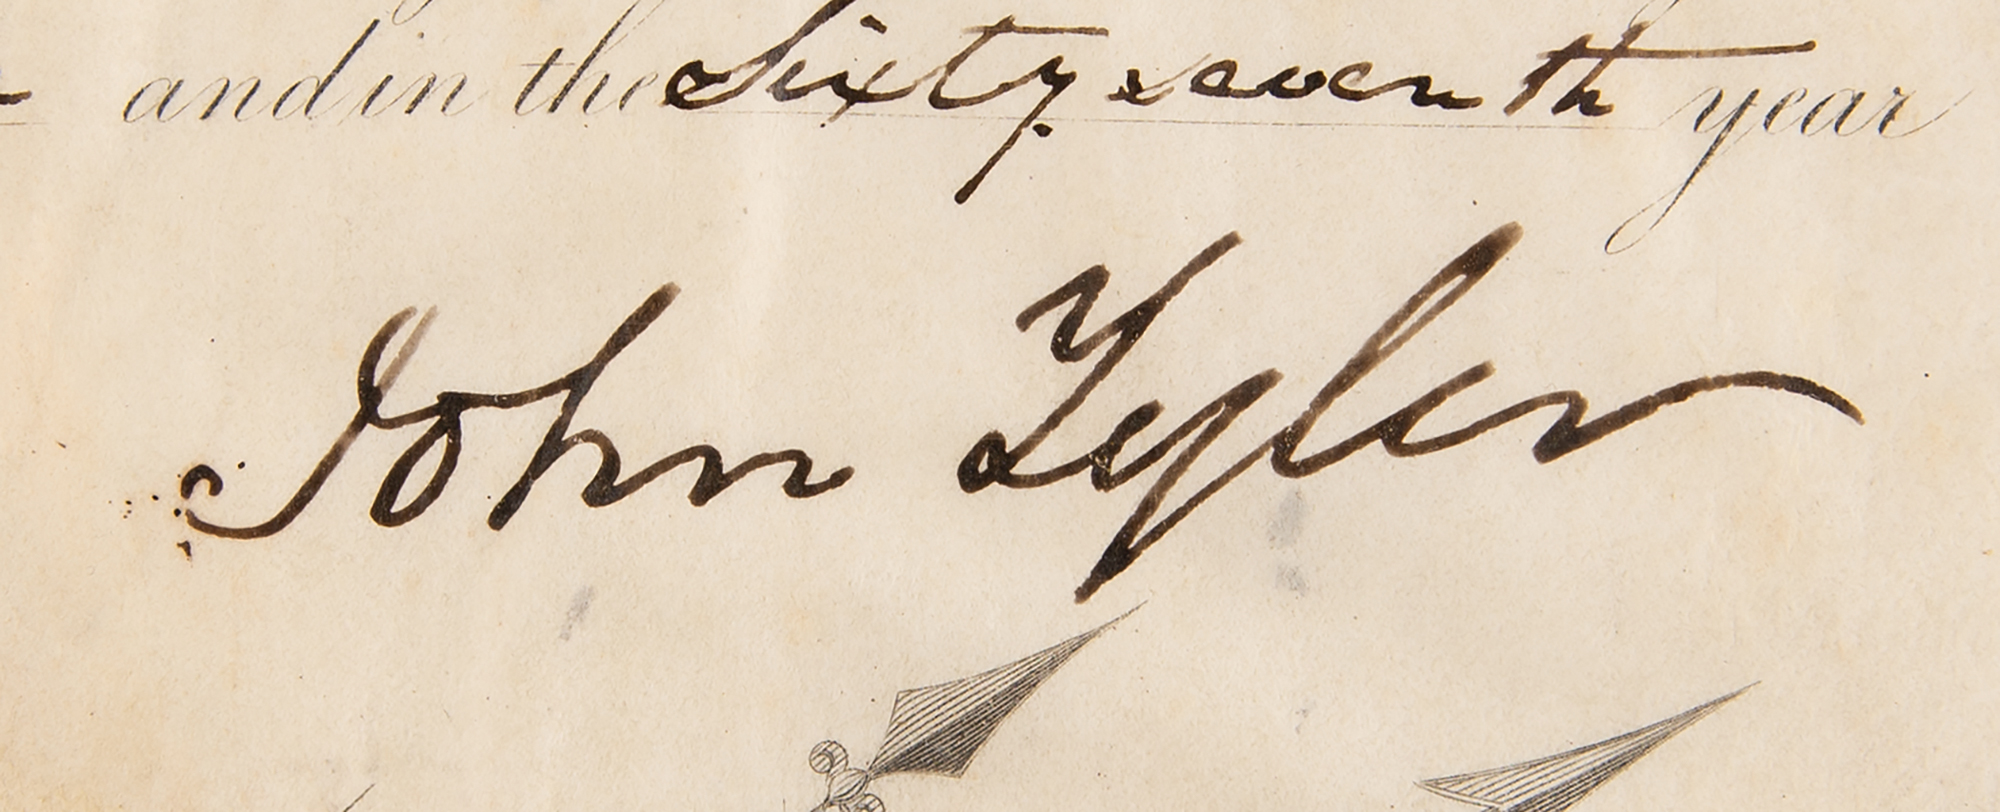 and in the Sixty seventh year
John Tyler